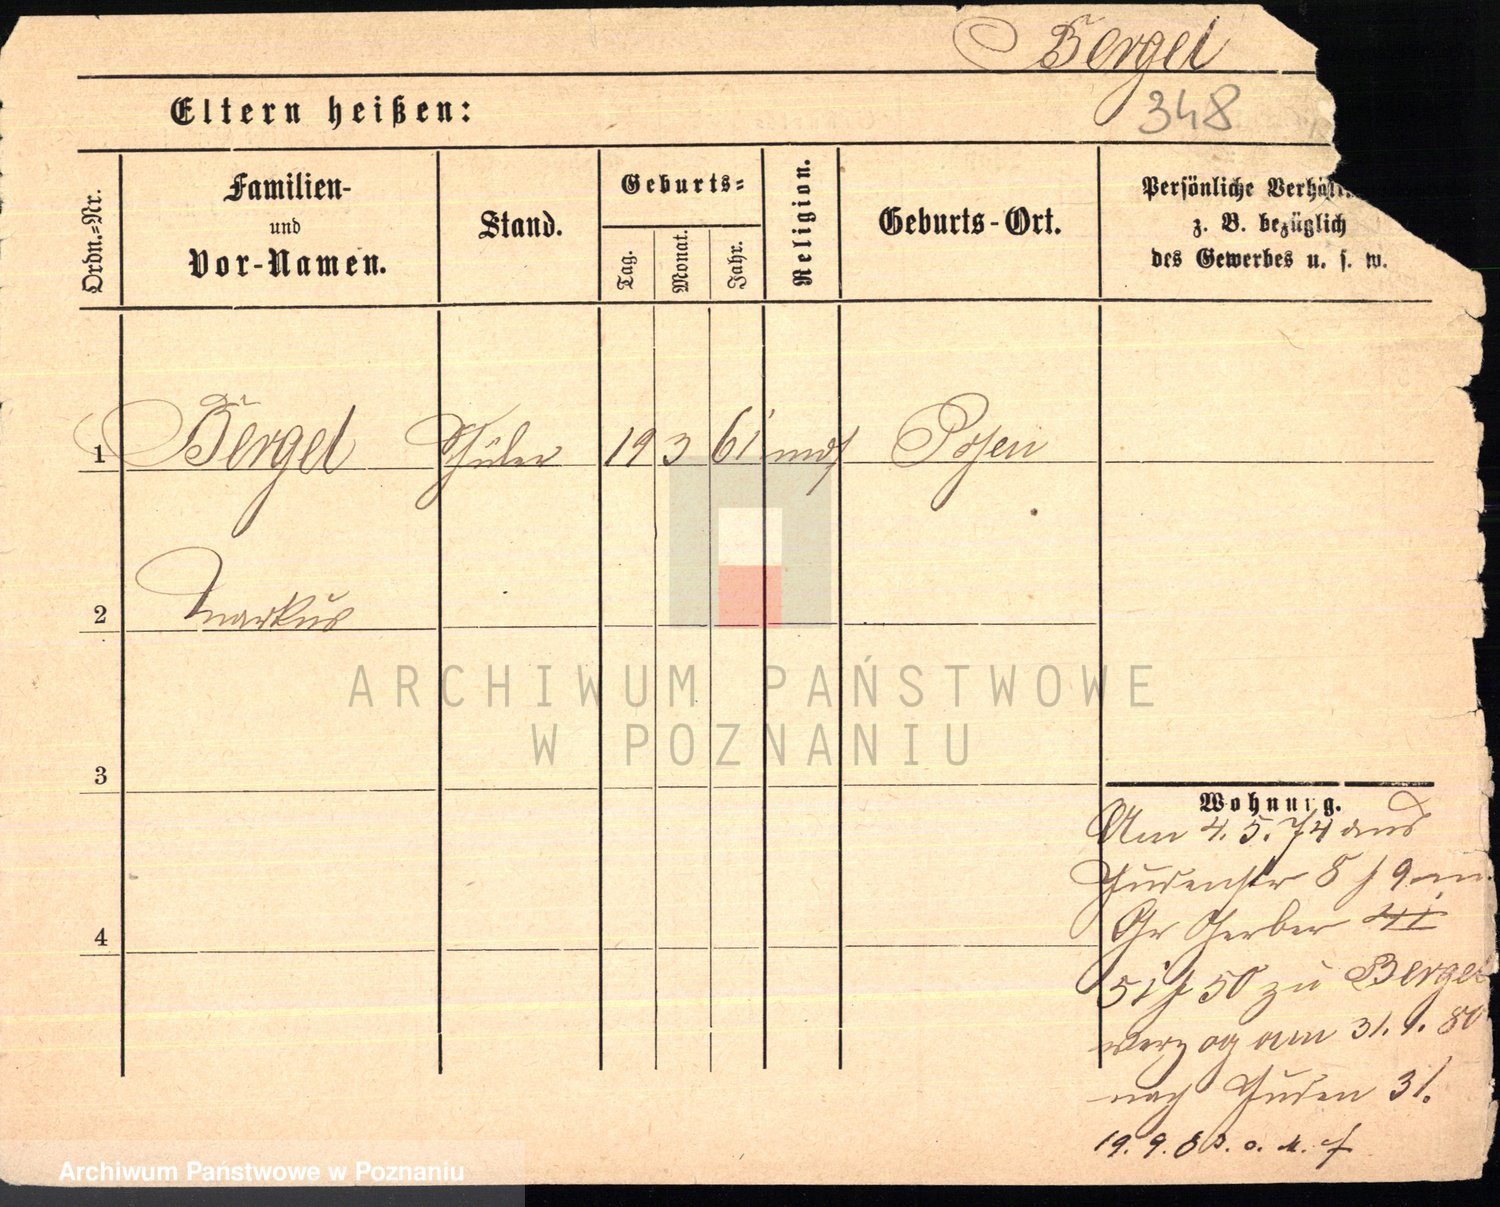 Bergel
348
Eltern heißen:
Ordn.=Nr.
Familien-
und
Vor-Namen.
Stand.
Geburts=
Tag.
Monat.
Jahr.
Religion.
Geburts-Ort.
Persönliche Verhält
z. B. bezüglich
des Gewerbes u. s. w.
1 Bergel Schüler 19 3 61 mos Posen
2 Markus
3
Wohnung.
Am 4. 5. 74 aus
Judenstr 8/9 in
4
Gr Gerber 41
51/50 zu Bergel
verzog am 31. 1. 80
nach Juden 31.
19. 9. 83. o. M. f
ARCHIWUM PAŃSTWOWE
W POZNANIU
Archiwum Państwowe w Poznaniu